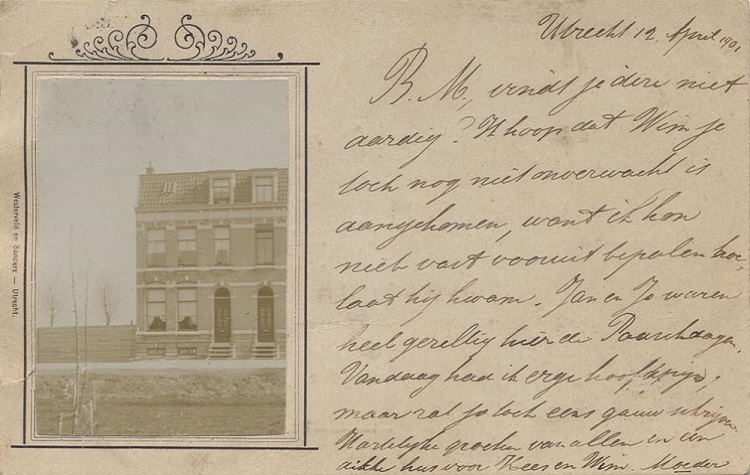 Utrecht 12 April 1901
B. M., vindt je deze niet
aardig? Ik hoop dat Wim je
toch nog niet onverwacht is
aangekomen, want ik kon
niet vast vooruit bepalen hoe
laat hij kwam. Jan en Jo waren
heel gezellig hier de Paaschdagen.
Vandaag had ik erge hoofdpijn,
maar zal je toch eens gauw schrijven.
Hartelijke groeten van allen en een
dikke kus voor Kees en Wim. Moeder
Westerveld en Sanders — Utrecht.